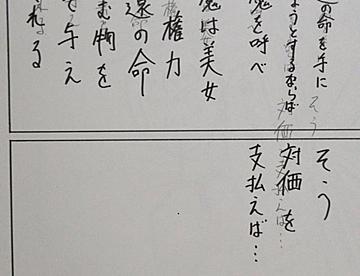 遠の命を手に
ようとするならば
魔を呼べ
魔は美女
権力
遠の命
む物を
を与え
れる
そう
対価を
支払えば…